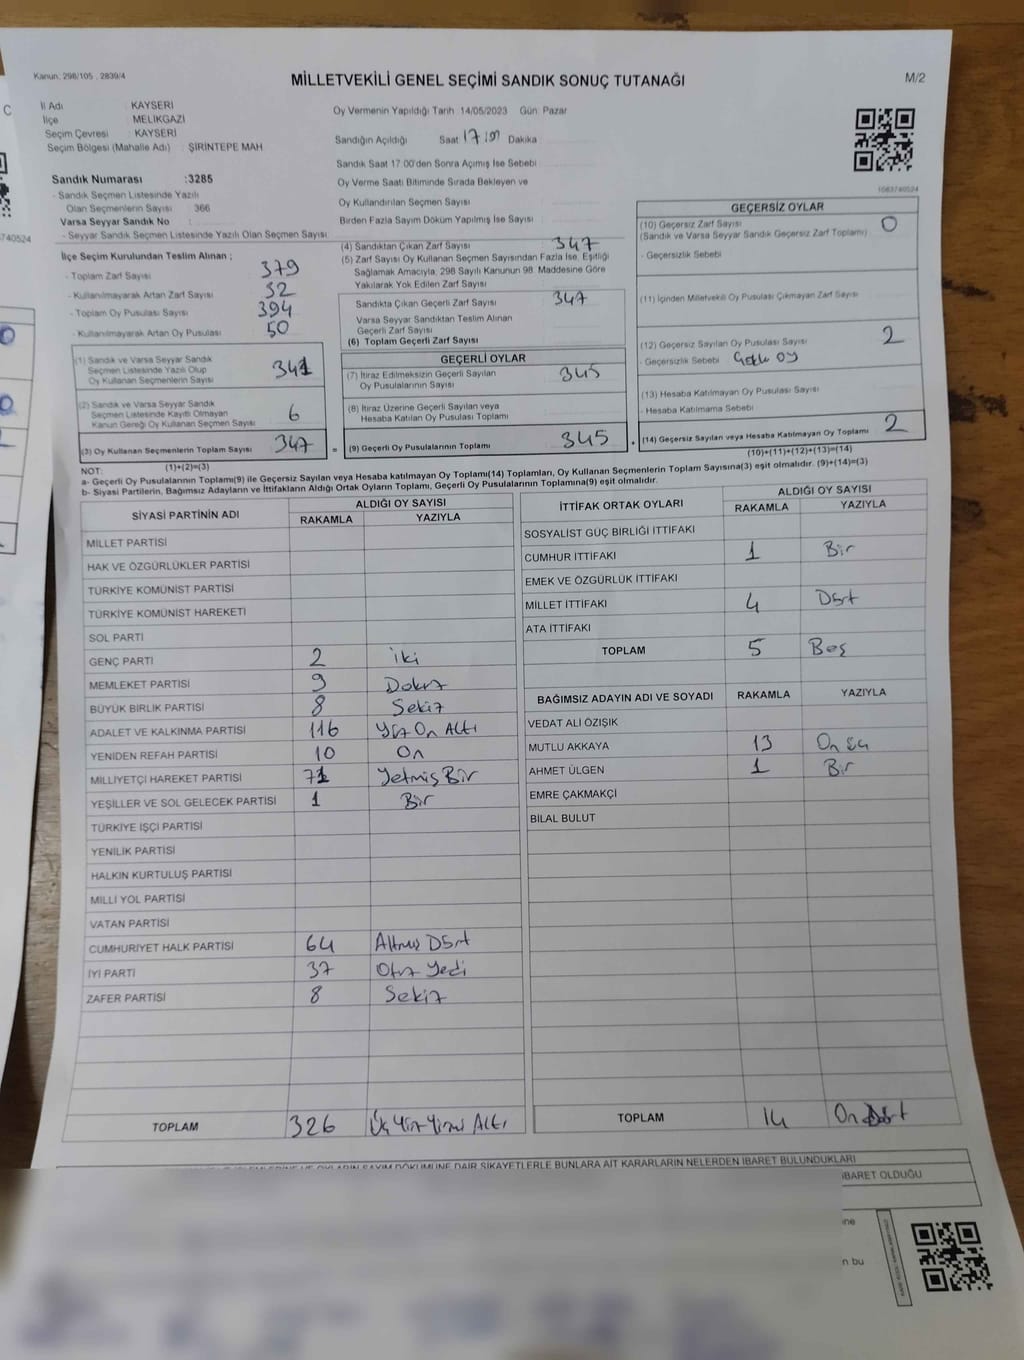 Kanun: 298/105 , 2839/4
MİLLETVEKİLİ GENEL SEÇİMİ SANDIK SONUÇ TUTANAĞI
M/2
İl Adı : KAYSERİ
İlçe : MELİKGAZİ
Seçim Çevresi : KAYSERİ
Seçim Bölgesi (Mahalle Adı) : ŞİRİNTEPE MAH
Sandık Numarası :3285
- Sandık Seçmen Listesinde Yazılı
Olan Seçmenlerin Sayısı : 366
Varsa Seyyar Sandık No :
- Seyyar Sandık Seçmen Listesinde Yazılı Olan Seçmen Sayısı
Oy Vermenin Yapıldığı Tarih 14/05/2023 Gün: Pazar
Sandığın Açıldığı Saat 17 Dakika
Sandık Saat 17 00'den Sonra Açılmış İse Sebebi
Oy Verme Saati Bitiminde Sırada Bekleyen ve
Oy Kullandırılan Seçmen Sayısı
Birden Fazla Sayım Döküm Yapılmış İse Sayısı
1063740524
İlçe Seçim Kurulundan Teslim Alınan ;
- Toplam Zarf Sayısı 379
- Kullanılmayarak Artan Zarf Sayısı 32
- Toplam Oy Pusulası Sayısı 394
- Kullanılmayarak Artan Oy Pusulası 50
(1) Sandık ve Varsa Seyyar Sandık
Seçmen Listesinde Yazılı Olup
Oy Kullanan Seçmenlerin Sayısı 341
(2) Sandık ve Varsa Seyyar Sandık
Seçmen Listesinde Kayıtlı Olmayan
Kanun Gereği Oy Kullanan Seçmen Sayısı 6
(3) Oy Kullanan Seçmenlerin Toplam Sayısı 347
(1)+(2)=(3)
(4) Sandıktan Çıkan Zarf Sayısı 347
(5) Zarf Sayısı Oy Kullanan Seçmen Sayısından Fazla İse, Eşitliği
Sağlamak Amacıyla, 298 Sayılı Kanunun 98. Maddesine Göre
Yakılarak Yok Edilen Zarf Sayısı
Sandıkta Çıkan Geçerli Zarf Sayısı 347
Varsa Seyyar Sandıktan Teslim Alınan
Geçerli Zarf Sayısı
(6) Toplam Geçerli Zarf Sayısı
GEÇERLİ OYLAR
(7) İtiraz Edilmeksizin Geçerli Sayılan
Oy Pusulalarının Sayısı 345
(8) İtiraz Üzerine Geçerli Sayılan veya
Hesaba Katılan Oy Pusulası Toplamı
= (9) Geçerli Oy Pusulalarının Toplamı 345
GEÇERSİZ OYLAR
(10) Geçersiz Zarf Sayısı 0
(Sandık ve Varsa Seyyar Sandık Geçersiz Zarf Toplamı)
- Geçersizlik Sebebi
(11) İçinden Milletvekili Oy Pusulası Çıkmayan Zarf Sayısı
(12) Geçersiz Sayılan Oy Pusulası Sayısı 2
- Geçersizlik Sebebi oy
(13) Hesaba Katılmayan Oy Pusulası Sayısı
- Hesaba Katılmama Sebebi
+ (14) Geçersiz Sayılan veya Hesaba Katılmayan Oy Toplamı 2
(10)+(11)+(12)+(13)=(14)
NOT:
a- Geçerli Oy Pusulalarının Toplamı(9) ile Geçersiz Sayılan veya Hesaba katılmayan Oy Toplamı(14) Toplamları, Oy Kullanan Seçmenlerin Toplam Sayısına(3) eşit olmalıdır. (9)+(14)=(3)
b- Siyasi Partilerin, Bağımsız Adayların ve İttifakların Aldığı Ortak Oyların Toplamı, Geçerli Oy Pusulalarının Toplamına(9) eşit olmalıdır.
SİYASİ PARTİNİN ADI ALDIĞI OY SAYISI
RAKAMLA YAZIYLA
MİLLET PARTİSİ
HAK VE ÖZGÜRLÜKLER PARTİSİ
TÜRKİYE KOMÜNİST PARTİSİ
TÜRKİYE KOMÜNİST HAREKETİ
SOL PARTİ
GENÇ PARTİ 2 iki
MEMLEKET PARTİSİ 9 Dokuz
BÜYÜK BİRLİK PARTİSİ 8 Sekiz
ADALET VE KALKINMA PARTİSİ 116 Yüz On Altı
YENİDEN REFAH PARTİSİ 10 On
MİLLİYETÇİ HAREKET PARTİSİ 71 Yetmiş Bir
YEŞİLLER VE SOL GELECEK PARTİSİ 1 Bir
TÜRKİYE İŞÇİ PARTİSİ
YENİLİK PARTİSİ
HALKIN KURTULUŞ PARTİSİ
MİLLİ YOL PARTİSİ
VATAN PARTİSİ
CUMHURİYET HALK PARTİSİ 64 Altmış Dört
İYİ PARTİ 37 Otuz Yedi
ZAFER PARTİSİ 8 Sekiz
TOPLAM 326 Üç Yüz Yirmi Altı
İTTİFAK ORTAK OYLARI ALDIĞI OY SAYISI
RAKAMLA YAZIYLA
SOSYALİST GÜÇ BİRLİĞİ İTTİFAKI
CUMHUR İTTİFAKI 1 Bir
EMEK VE ÖZGÜRLÜK İTTİFAKI
MİLLET İTTİFAKI 4 Dört
ATA İTTİFAKI
TOPLAM 5 Beş
BAĞIMSIZ ADAYIN ADI VE SOYADI RAKAMLA YAZIYLA
VEDAT ALİ ÖZIŞIK
MUTLU AKKAYA 13 On üç
AHMET ÜLGEN 1 Bir
EMRE ÇAKMAKÇİ
BİLAL BULUT
TOPLAM 14 On Dört
OYLARIN SAYIM DÖKÜMÜNE DAİR ŞİKAYETLERLE BUNLARA AİT KARARLARIN NELERDEN İBARET BULUNDUKLARI
İBARET OLDUĞU
ine
n bu